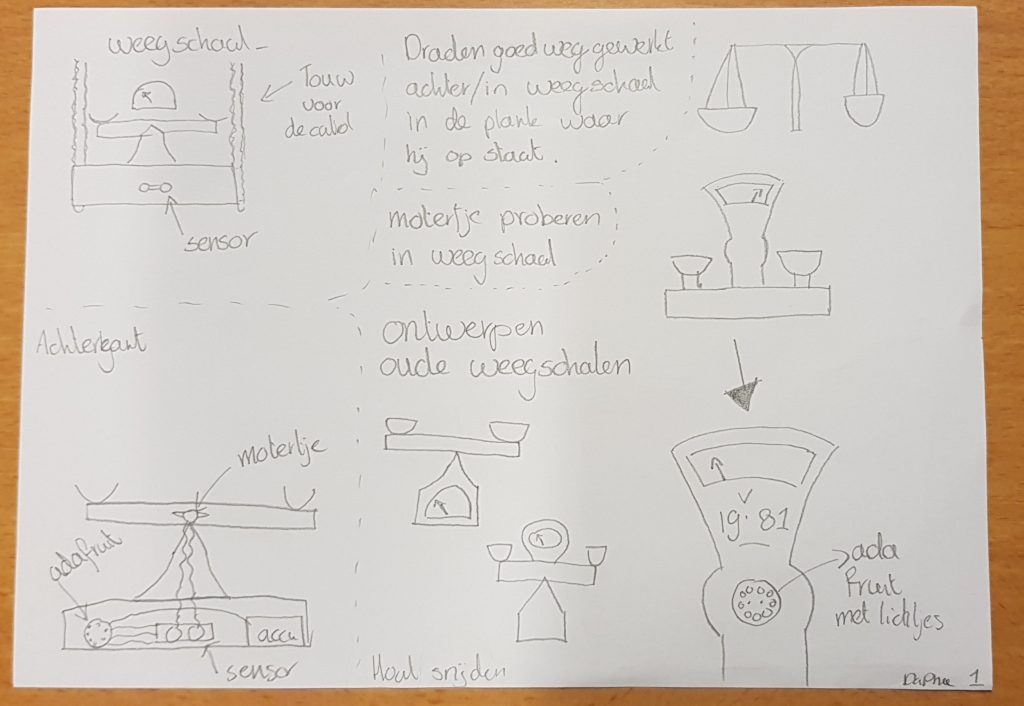 weegschaal
Touw
voor
de
sensor
Draden goed weggewerkt
achter/in weegschaal
in de plank waar
hij op staat.
motertje proberen
in weegschaal
Achterkant
motertje
adafruit
accu
sensor
ontwerpen
oude weegschalen
Hout snijden
19.81
ada
fruit
met lichtjes
Daphne 1